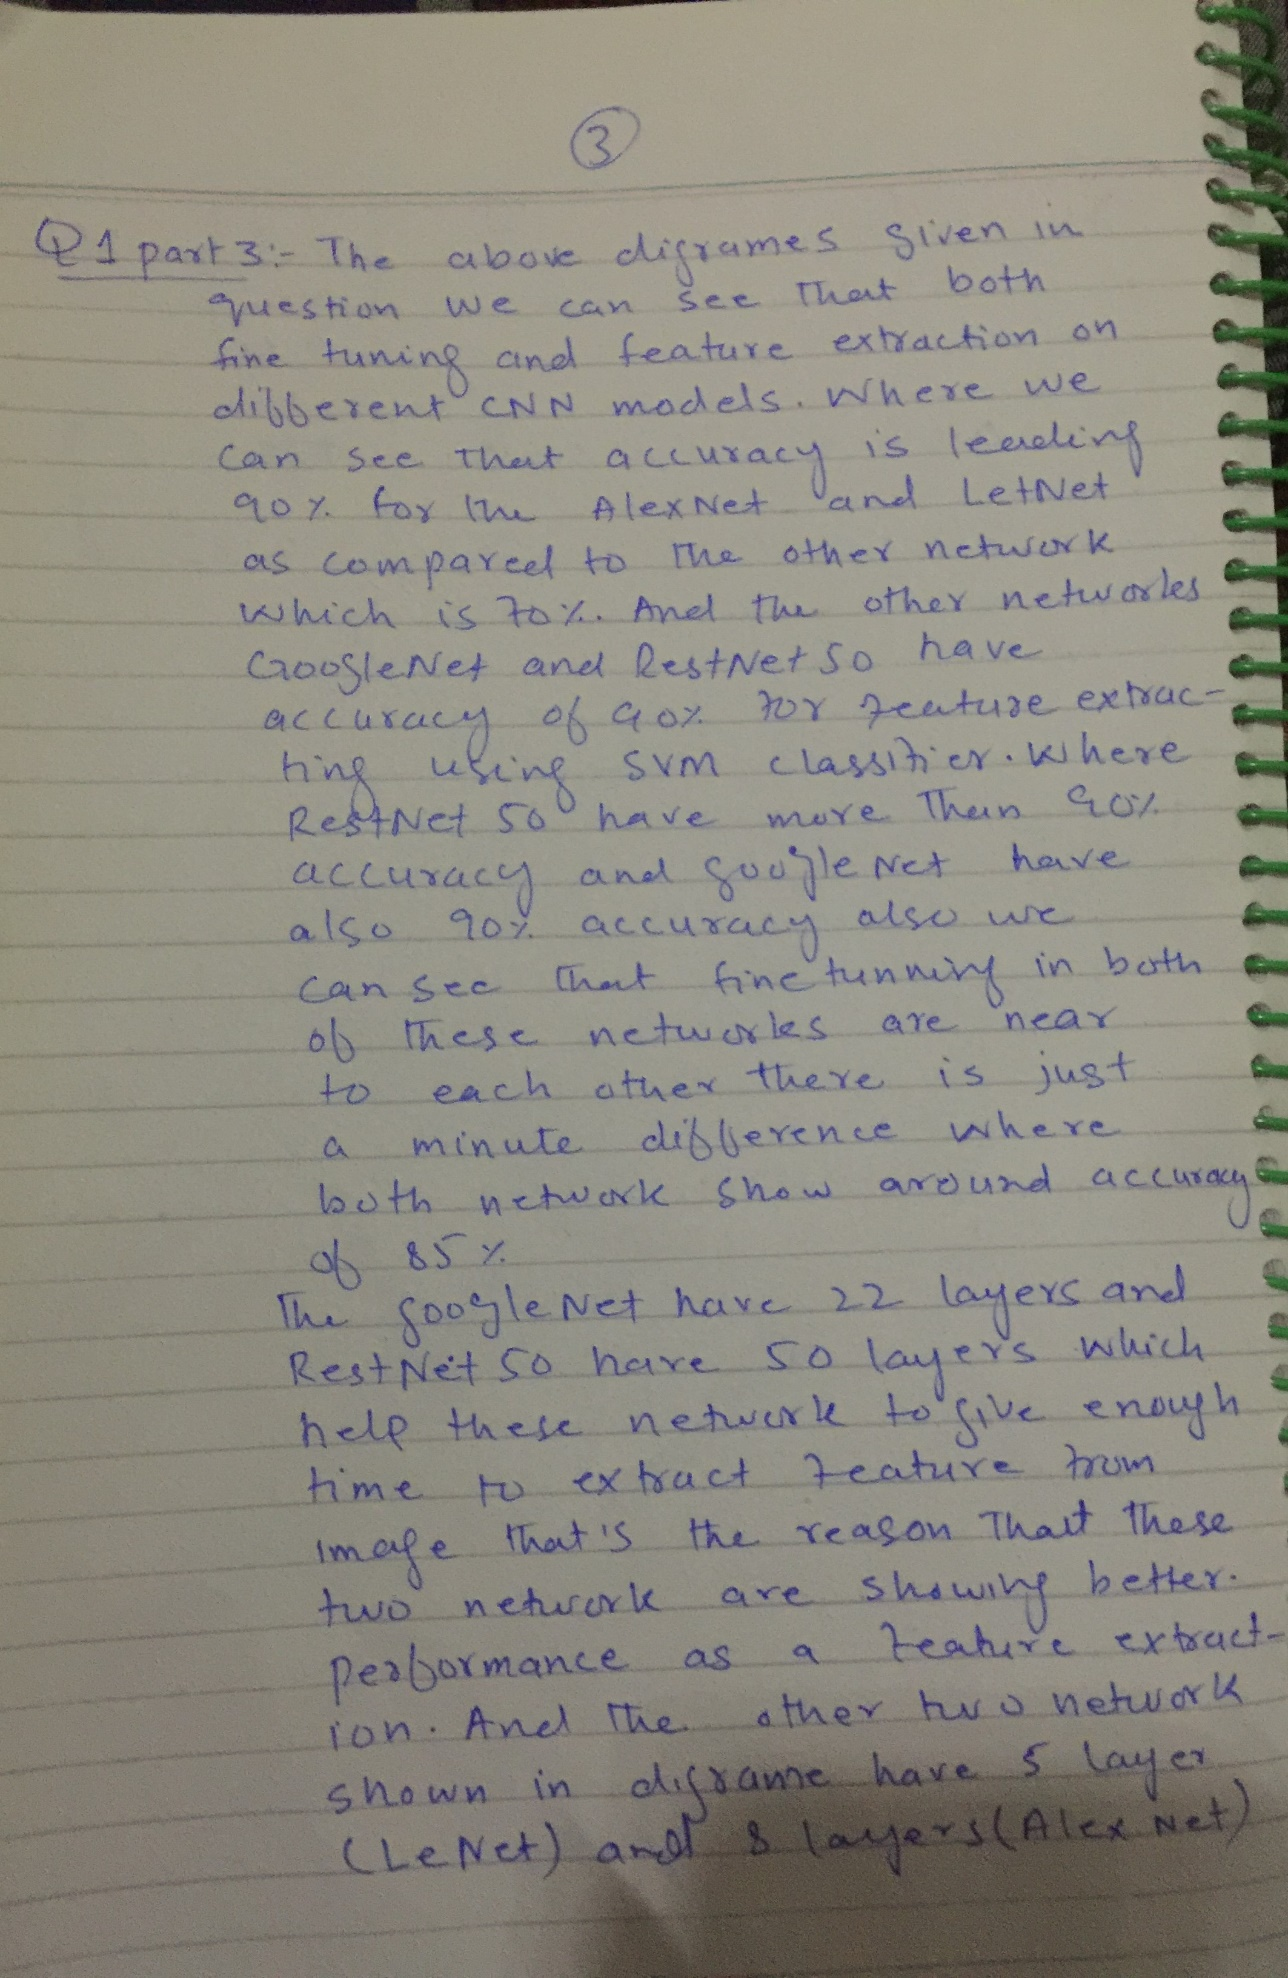 3
Q1 part 3:- The above digrames given in
question we can see that both
fine tuning and feature extraction on
different CNN models. Where we
can see that accuracy is leading
90% for the AlexNet and LetNet
as compared to the other network
which is 70%. And the other networks
GoogleNet and RestNet 50 have
accuracy of 90% for feature extrac-
ting using SVM classifier. Where
RestNet 50 have more than 90%
accuracy and googleNet have
also 90% accuracy also we
can see that fine tunning in both
of these networks are near
to each other there is just
a minute difference where
both network show around accuracy
of 85%
The googleNet have 22 layers and
RestNet 50 have 50 layers which
help these network to give enough
time to extract feature from
image that's the reason that these
two network are showing better.
performance as a feature extract-
ion. And the other two network
shown in digrame have 5 layer
(LeNet) and 8 layers (Alex Net)